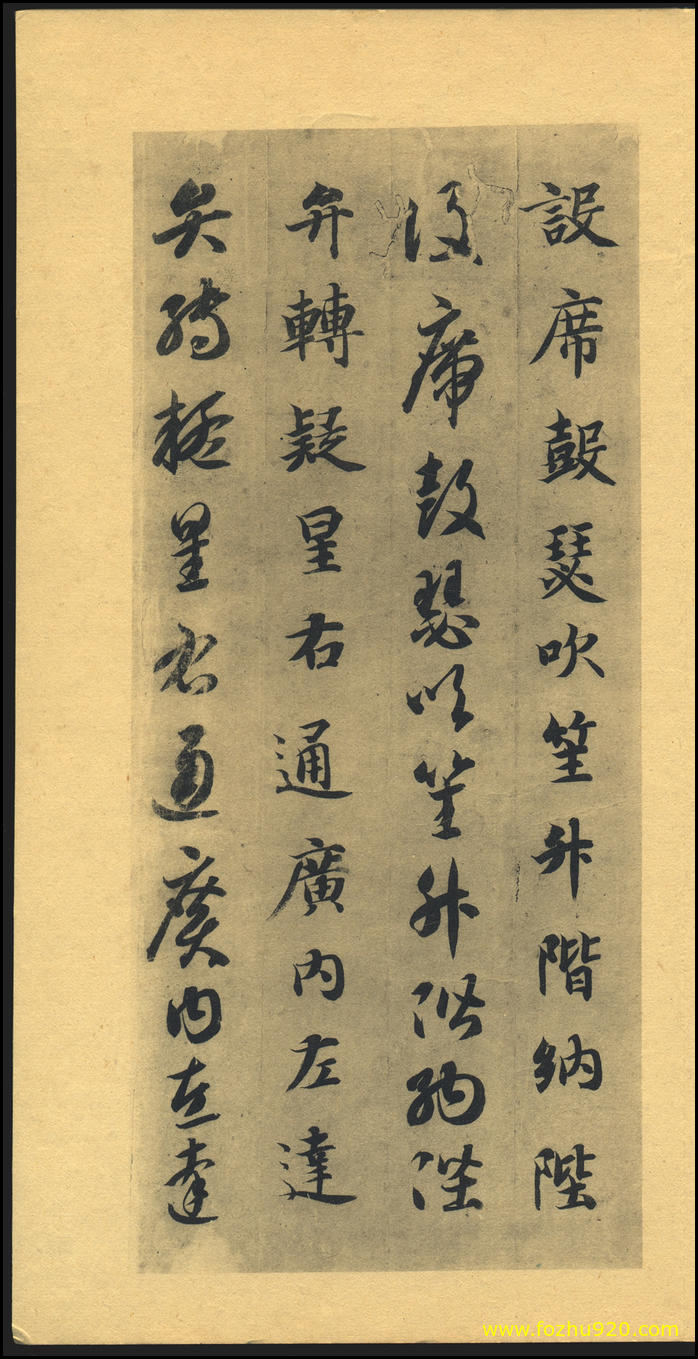 設席鼓瑟吹笙升階納陛
設席鼓瑟吹笙升階納陛
弁轉疑星右通廣內左達
弁轉疑星右通廣內左達
www.fozhu920.com